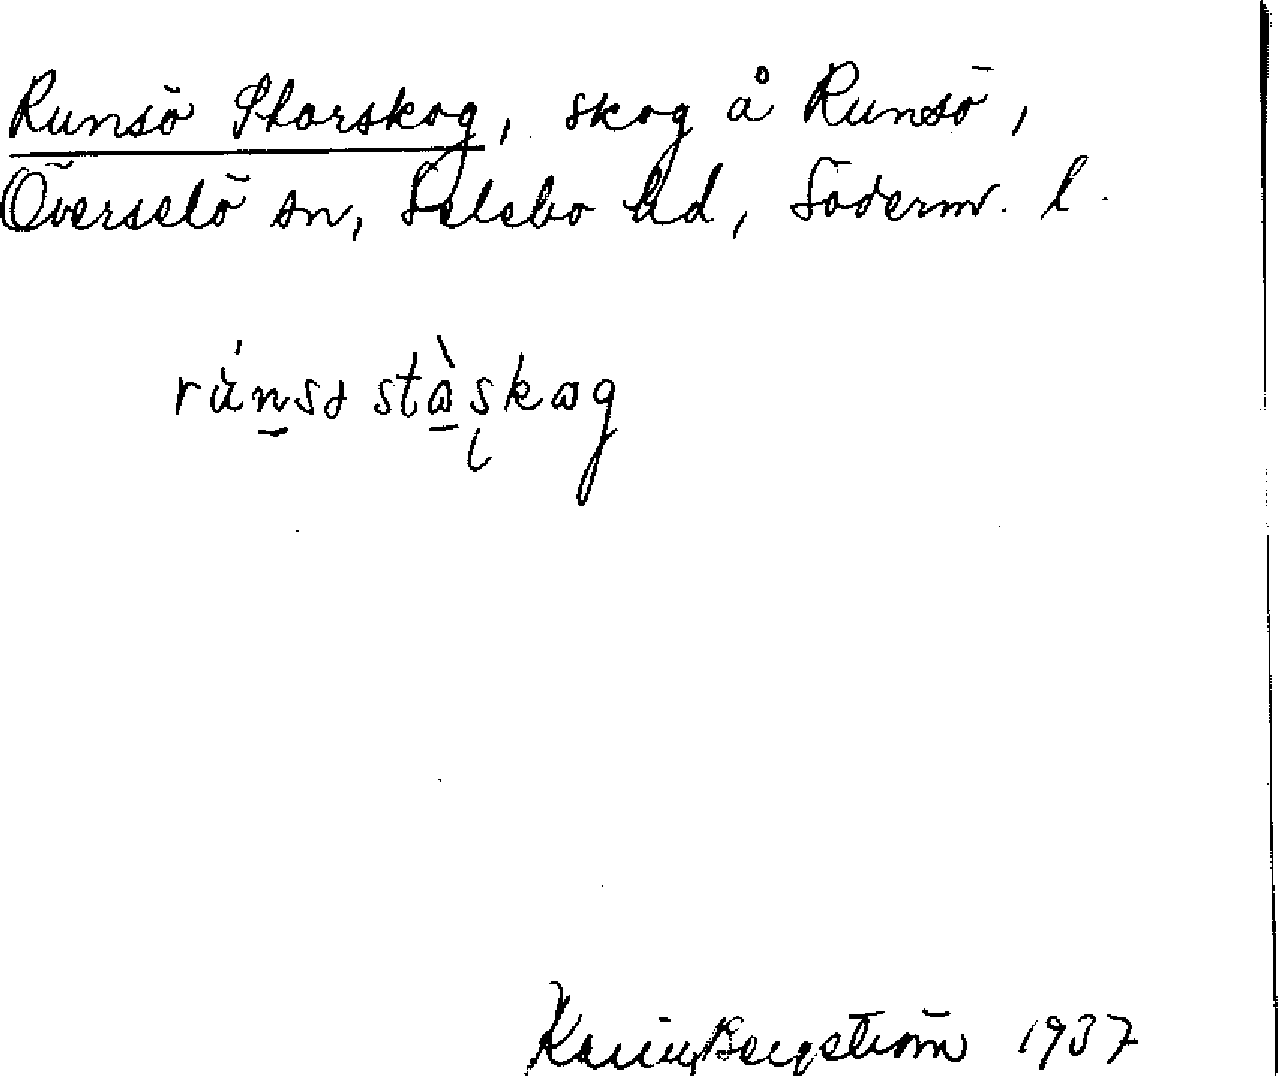 Runsö Storskog, skog å Runsö,
Överselö sn, Selebo hd, Söderm. l.
rúnsə stàşkog
Karin Bergström 1937